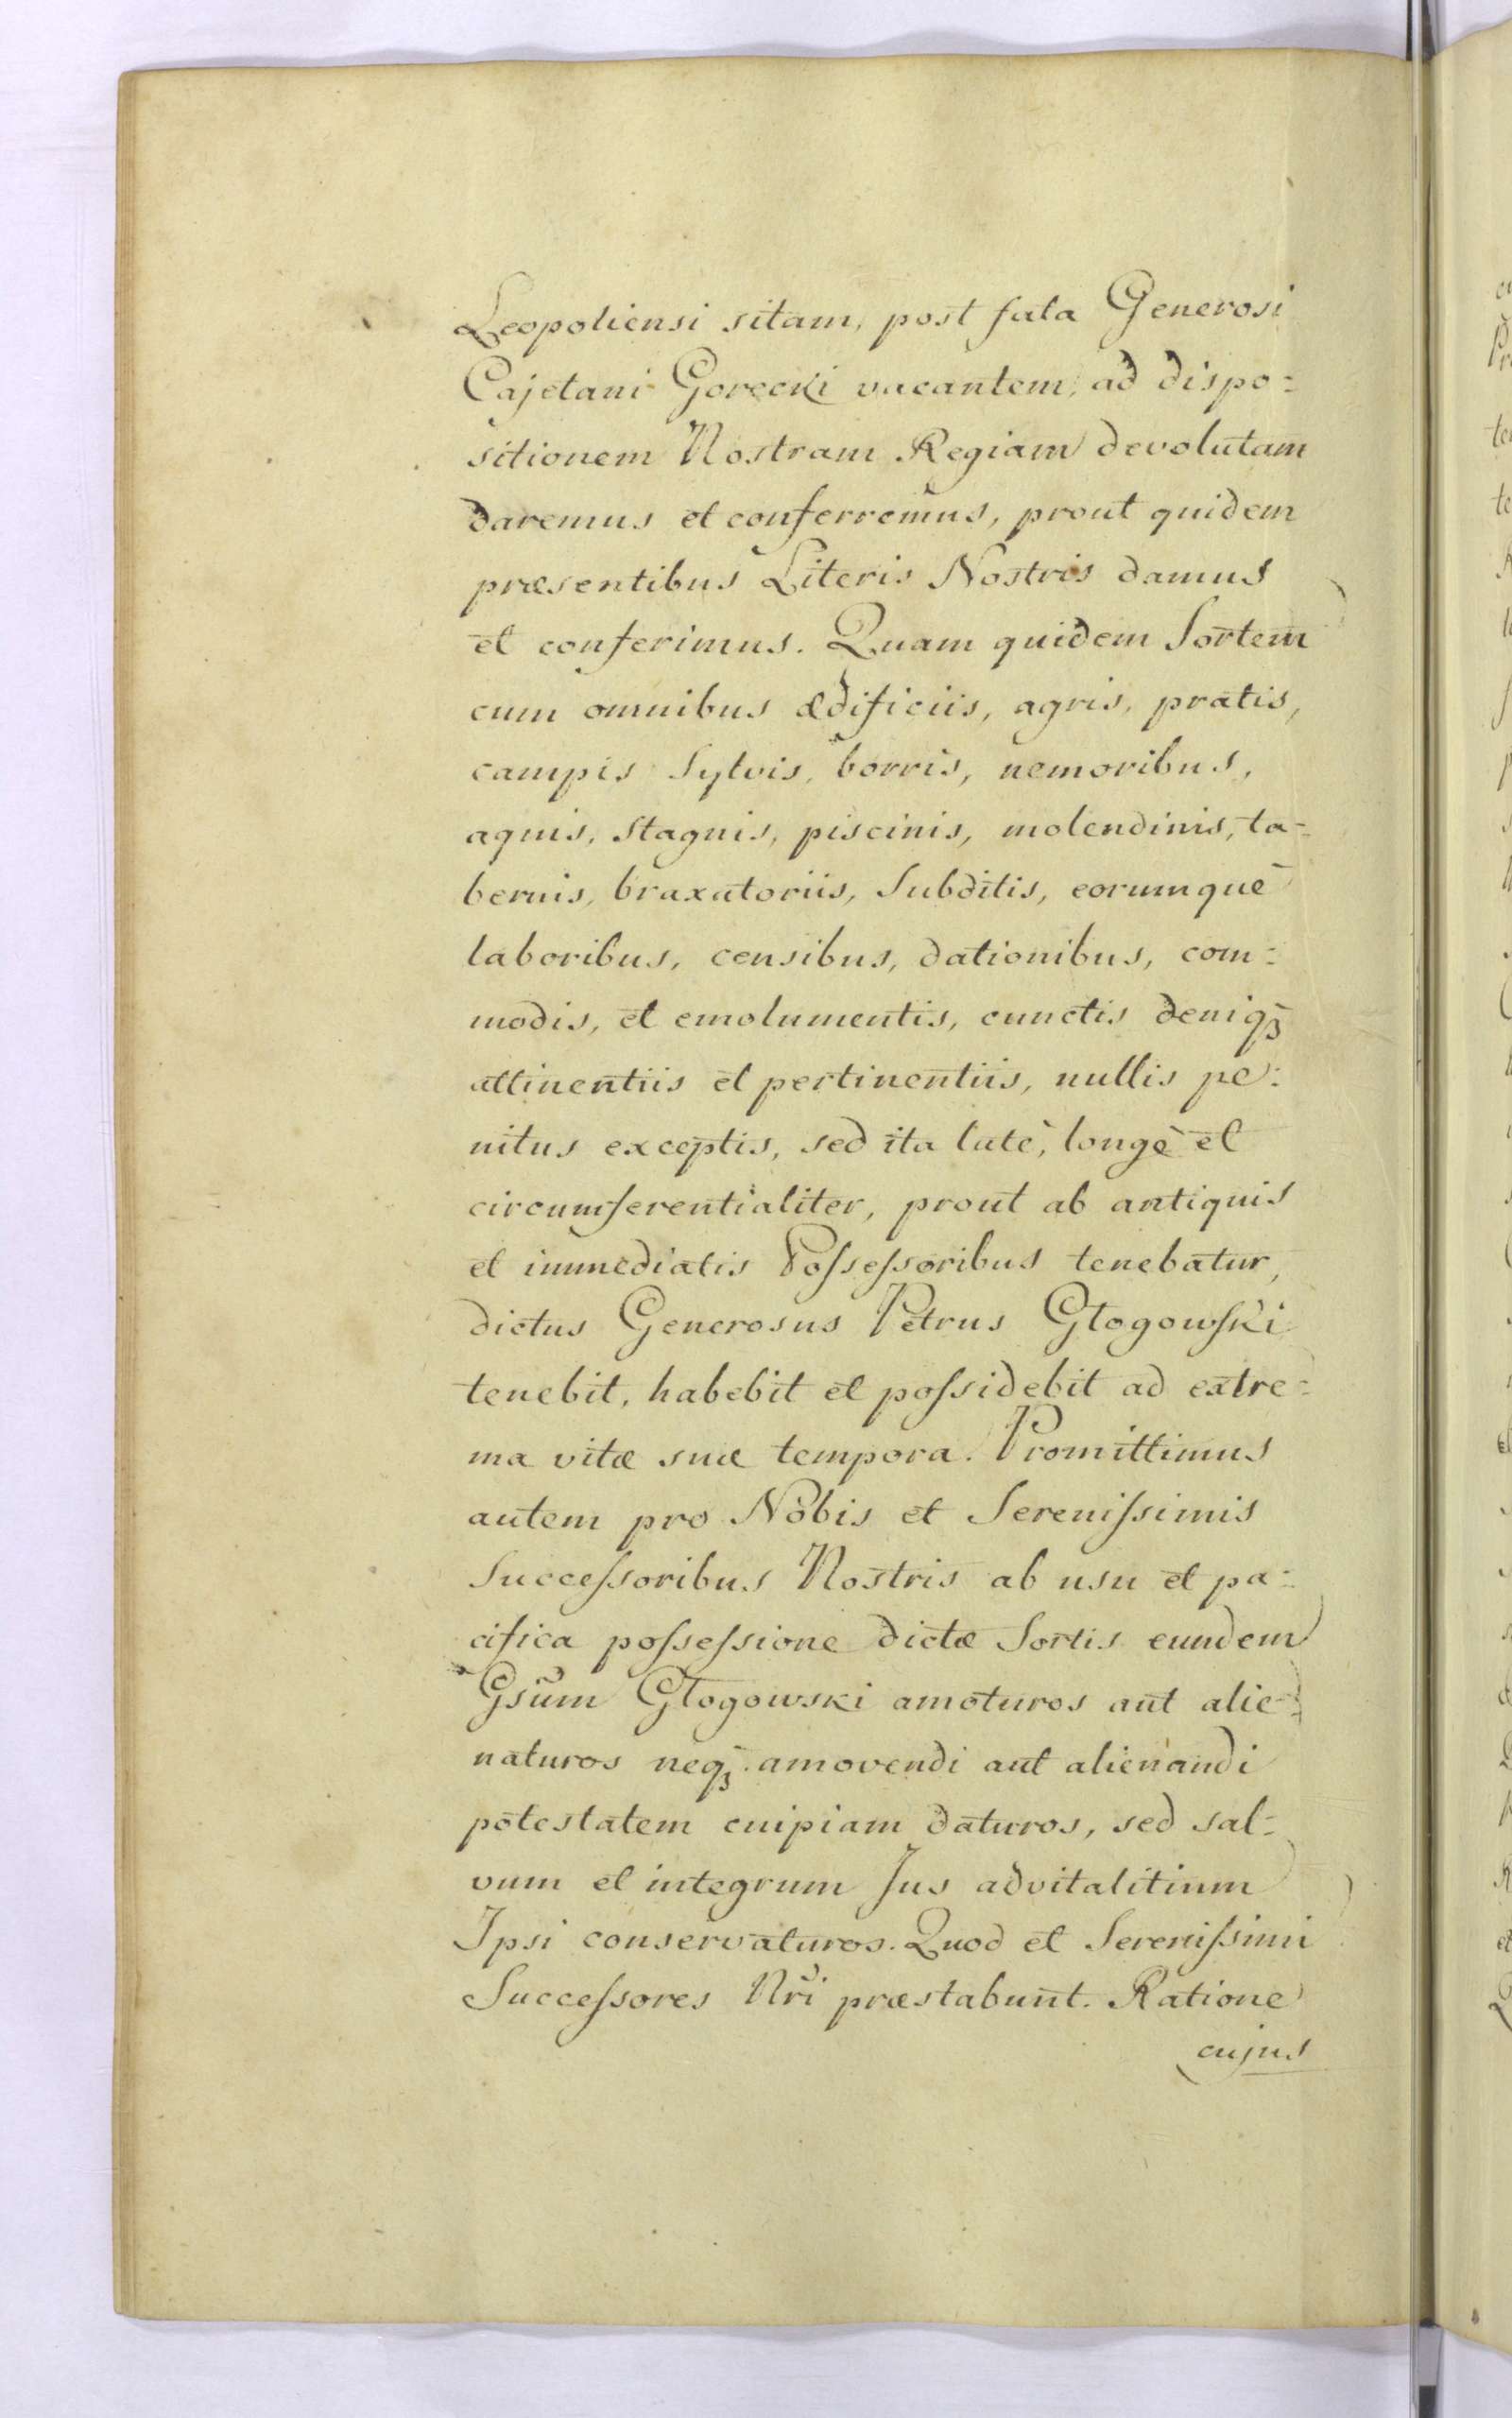 Leopoliensi sitam, post fata Generosi
Cajetani Gorecki vacantem, ad dispo=
sitionem Nostram Regiam devolutam
daremus et conferremus, prout quidem
præsentibus Literis Nostris damus
et conferimus. Quam quidem Sortem
cum omnibus ædificiis, agris, pratis,
campis Sylvis, borris, nemoribus,
aquis, Stagnis, piscinis, molendinis, ta=
bernis, braxatoriis, Subditis, eorumque
laboribus, censibus, dationibus, com=
modis, et emolumentis, cunctis deniqꝫ
attinentiis et pertinentiis, nullis pe=
nitus exceptis, sed ita latè, longè et
circumferentialiter, prout ab antiquis
et immediatis Poſseſsoribus tenebatur,
dictus Generosus Petrus Głogowſki
tenebit, habebit et poſsidebit ad extre=
ma vitæ suæ tempora. Promittimus
autem pro Nobis et Sereniſsimis
Succeſsoribus Nostris ab usu et pa=
cifica poſseſsione dictæ Sortis eundem
Gsum Głogowski amoturos aut alie=
naturos neqꝫ amovendi aut alienandi
potestatem cuipiam daturos, sed sal=
vum et integrum Jus advitalitium
Ipsi conservaturos. Quod et Sereniſsimi
Succeſsores Nri præstabunt. Ratione
cujus